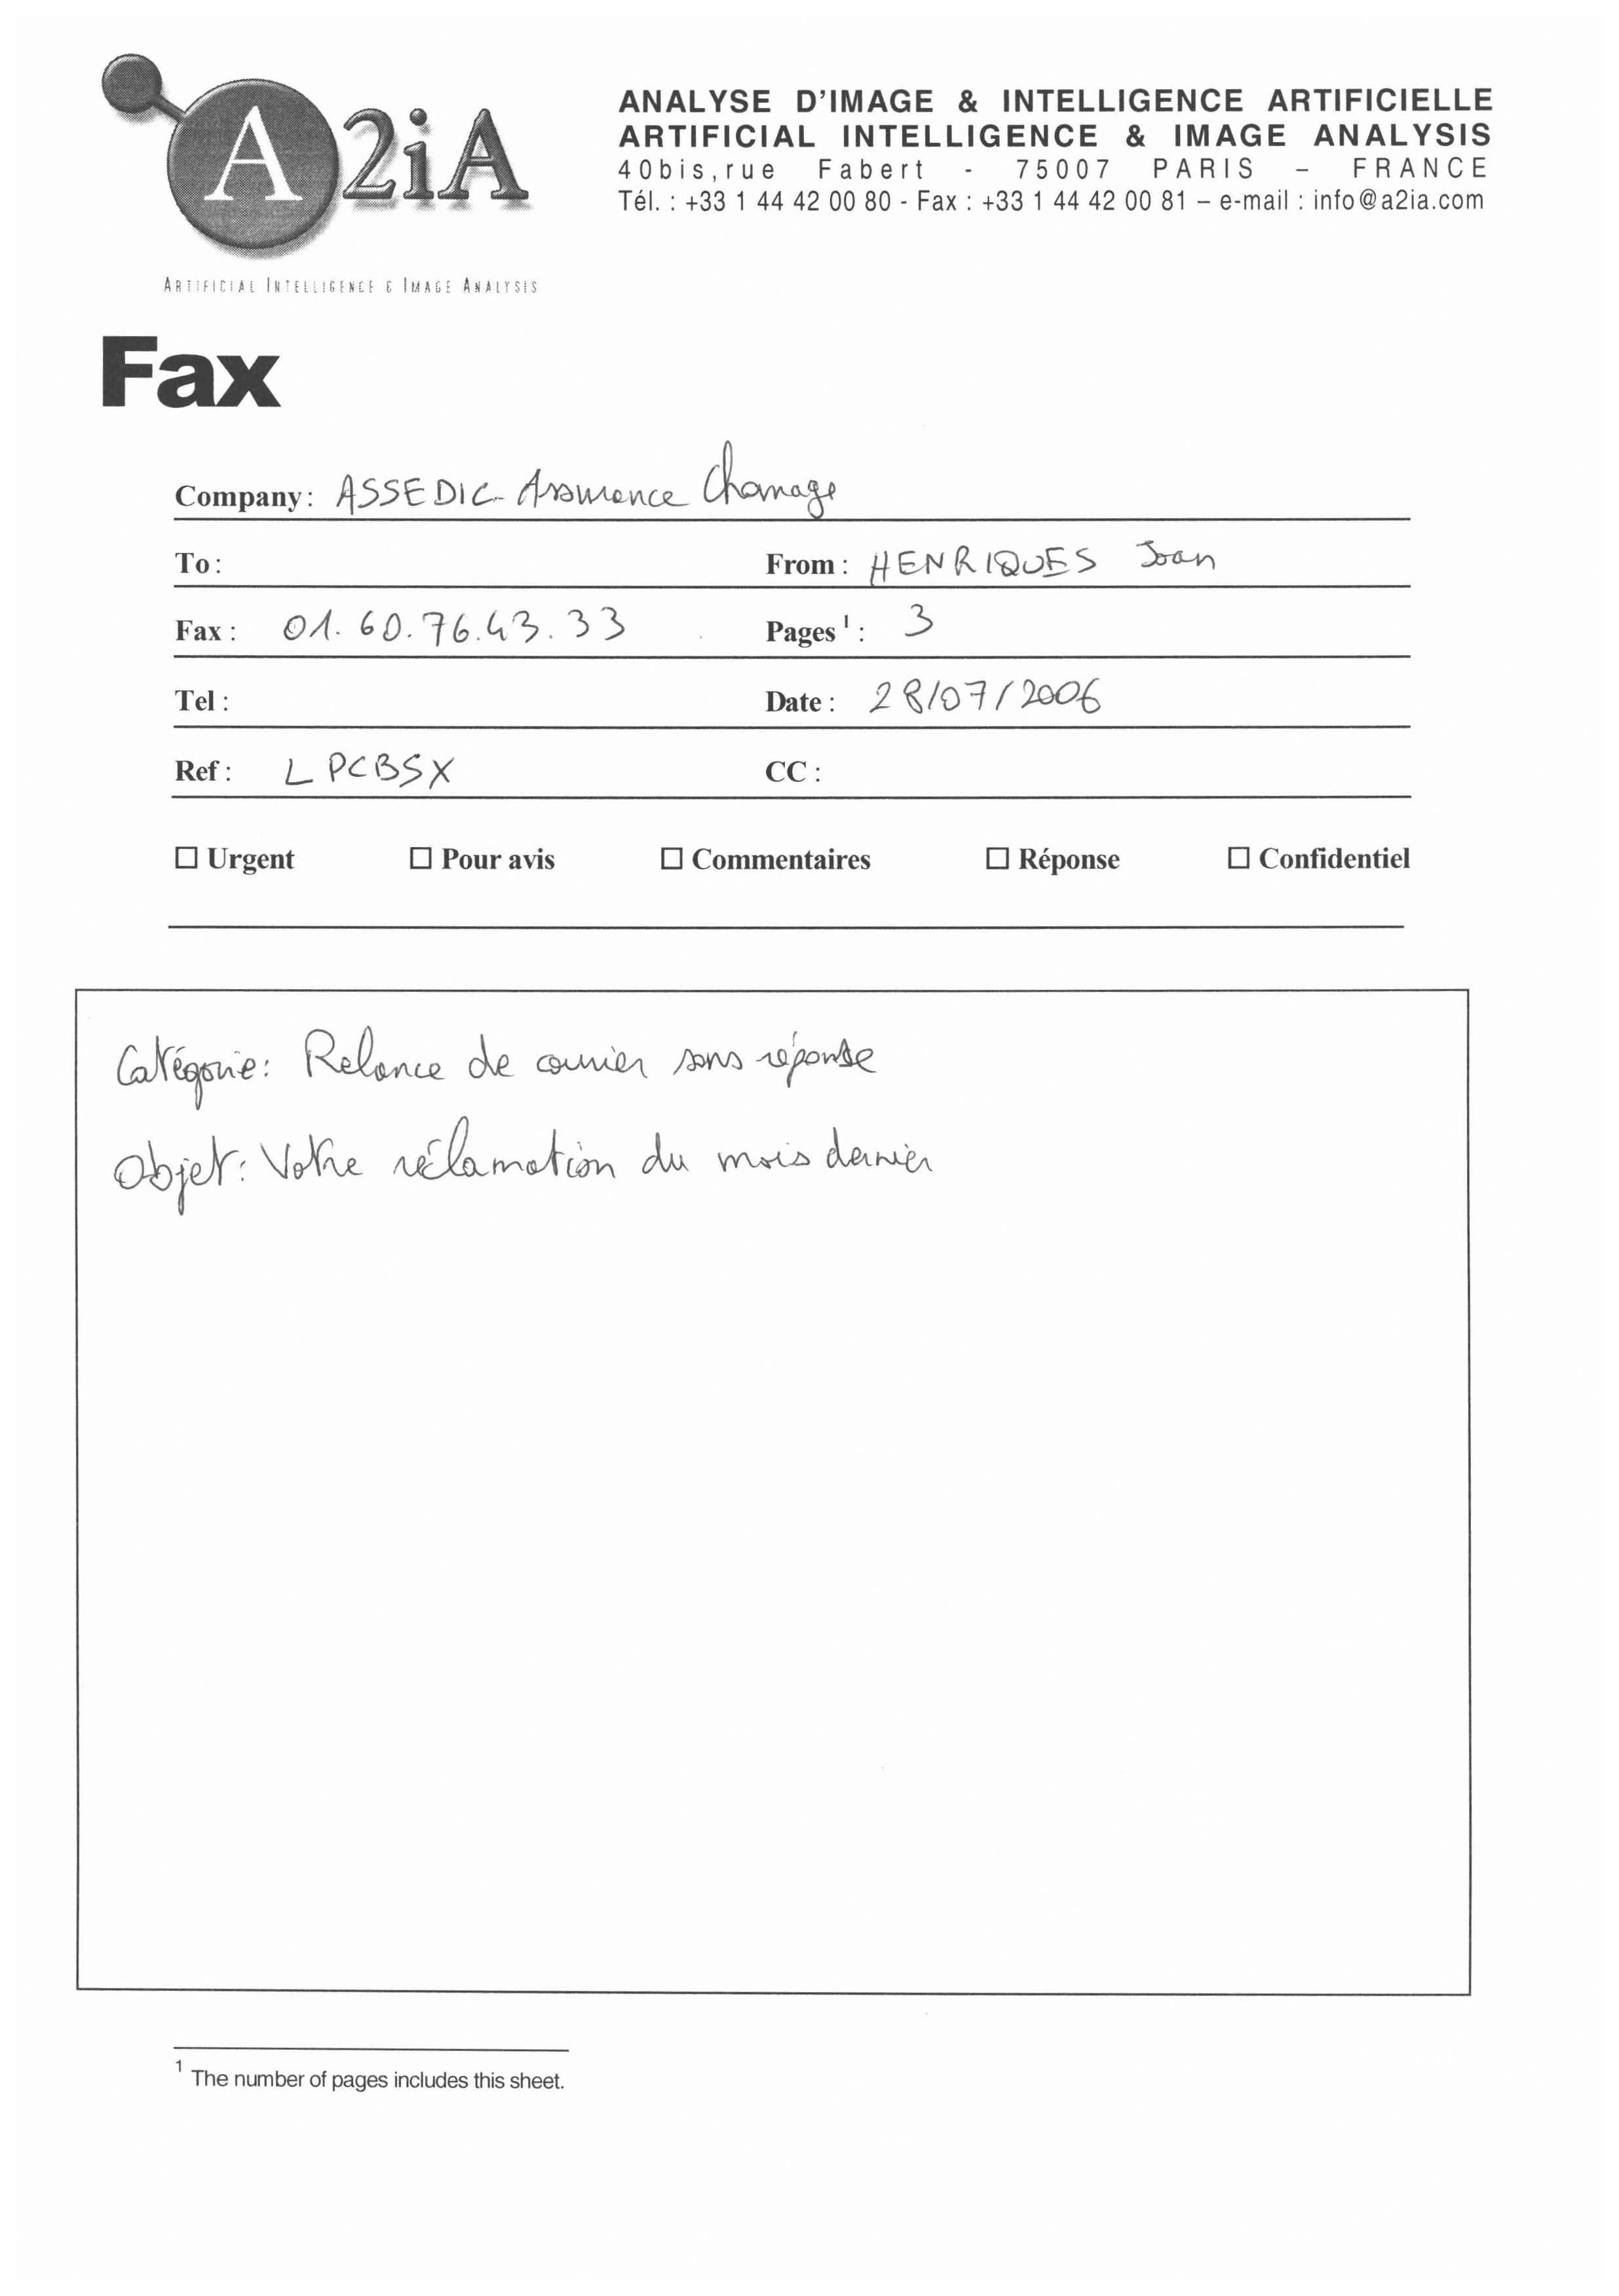 A2iA
ARTIFICIAL INTELLIGENCE & IMAGE ANALYSIS
ANALYSE D'IMAGE & INTELLIGENCE ARTIFICIELLE
ARTIFICIAL INTELLIGENCE & IMAGE ANALYSIS
40bis,rue Fabert - 75007 PARIS – FRANCE
Tél. : +33 1 44 42 00 80 - Fax : +33 1 44 42 00 81 – e-mail : info@a2ia.com
Fax
Company: ASSEDIC- Assurance Chomage
To: From: HENRIQUES Joan
Fax: 01.60.76.43.33 Pages ¹: 3
Tel: Date: 28/07/2006
Ref: LPCBSX CC:
☐ Urgent ☐ Pour avis ☐ Commentaires ☐ Réponse ☐ Confidentiel
Catégorie: Relance de courrier sans réponse
Objet: Votre réclamation du mois dernier
¹ The number of pages includes this sheet.